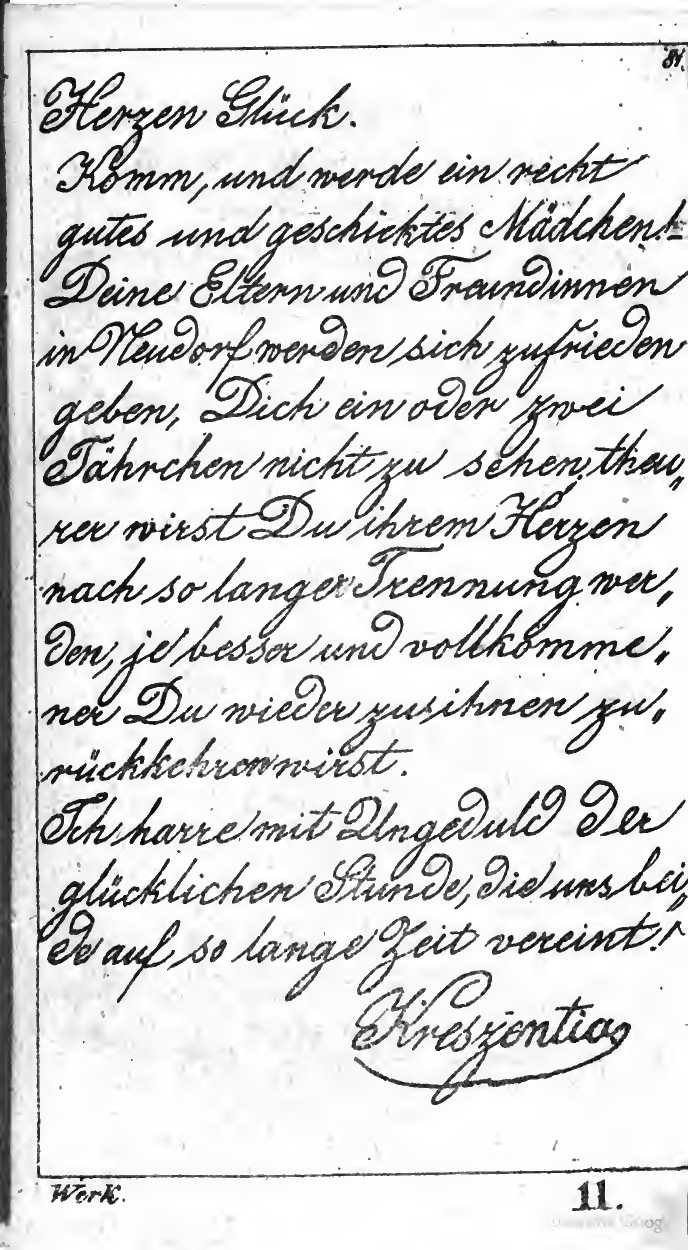 Herzen Glück.
Komm, und werde ein recht
gutes und geschicktes Mädchen!-
Deine Eltern und Freundinnen
in Neudorf werden sich zufrieden
geben, Dich ein oder zwei
Jährchen nicht zu sehen, theu„
rer wirst Du ihrem Herzen
nach so langer Trennung wer„
den, je besser und vollkomme„
ner Du wieder zu ihnen zu„
rückkehren wirst.
Ich harre mit Ungeduld der
glücklichen Stunde, die uns bei„
de auf so lange Zeit vereint!
Kreszentia
Werk.
11.